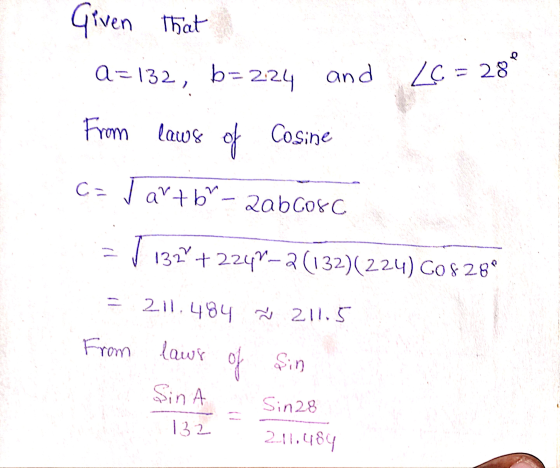 Given that
a=132, b=224 and ∠C = 28°
From laws of Cosine
C= √a²+b²- 2abCosC
= √132²+224²-2(132)(224) Cos28°
= 211.484 ≈ 211.5
From laws of Sin
Sin A / 132 = Sin28 / 211.484